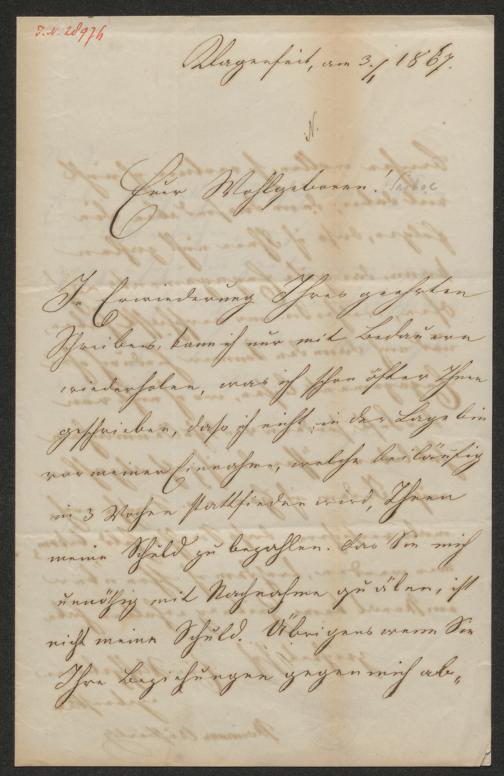 I. N. 28976
Klagenfurt, am 3/1 1867.
N.
Euer Wohlgeboren!
In Erwiederung Ihres geehrten
Schreibens, kann ich nur mit Bedauern
wiederholen, was ich schon öfter Ihnen
geschrieben, dass ich nicht in der Lage bin
vor meiner Einnahme, welche beiläufig
in 3 Wochen stattfinden wird, Ihnen
meine Schuld zu bezahlen. Das Sie mich
unnöthig mit Nachnahme quälen, ist
nicht meine Schuld. Übrigens wenn Sie
Ihre Beziehungen gegen mich ab„